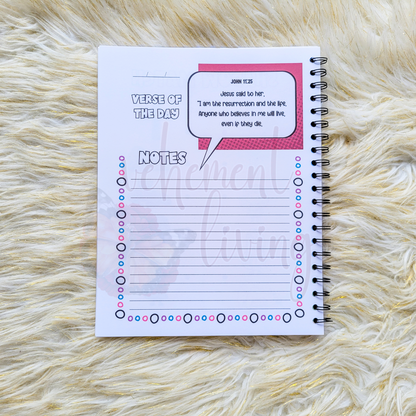 JOHN 11:25
Jesus said to her,
"I am the resurrection and the life;
Anyone who believes in me will live,
even if they die.
VERSE OF
THE DAY
NOTES
vehement
living